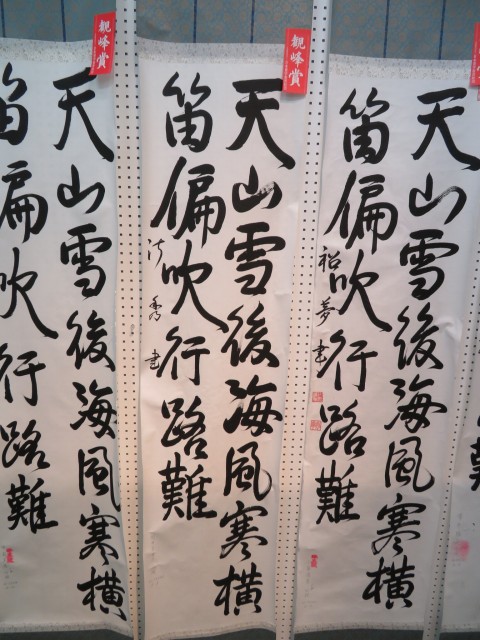 天山雪後海風寒横
笛偏吹行路難
書
観峰賞
天山雪後海風寒横
笛偏吹行路難
書
観峰賞
天山雪後海風寒横
笛偏吹行路難